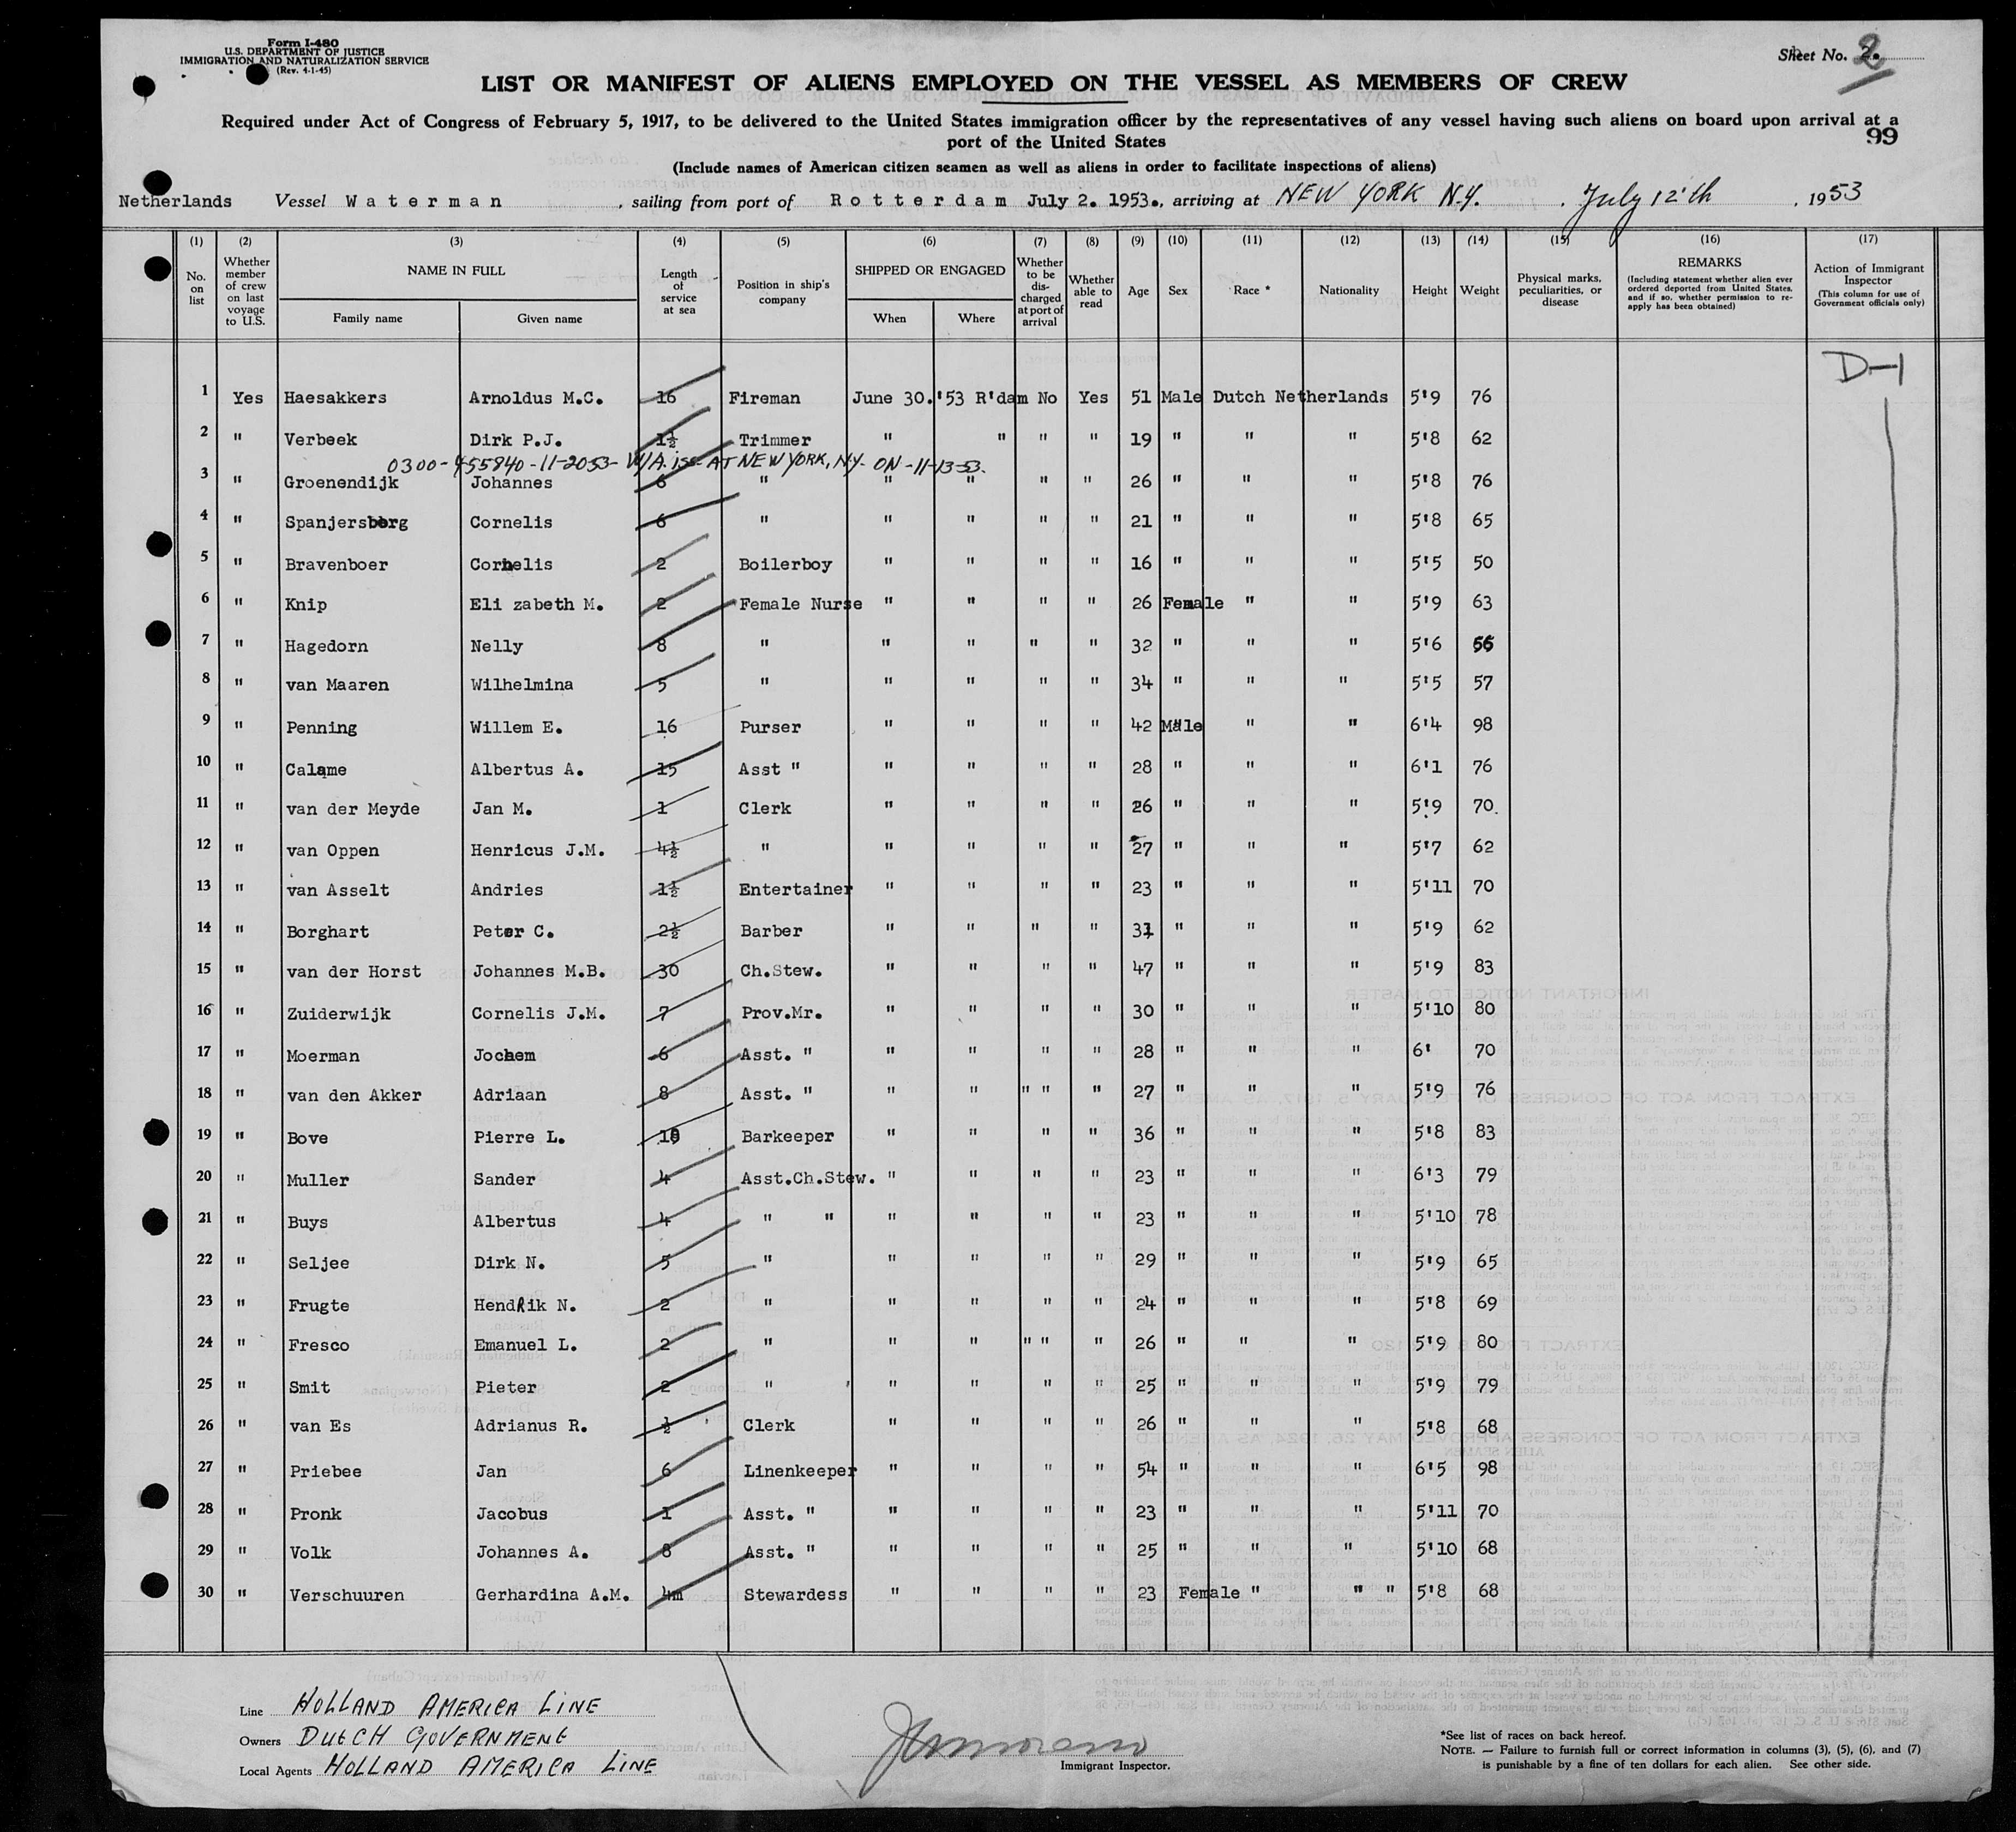 Form I-480
U.S. DEPARTMENT OF JUSTICE
IMMIGRATION AND NATURALIZATION SERVICE
(Rev. 4-1-45)
Sheet No. 2.
2
LIST OR MANIFEST OF ALIENS EMPLOYED ON THE VESSEL AS MEMBERS OF CREW
Required under Act of Congress of February 5, 1917, to be delivered to the United States immigration officer by the representatives of any vessel having such aliens on board upon arrival at a
port of the United States
99
(Include names of American citizen seamen as well as aliens in order to facilitate inspections of aliens)
Netherlands Vessel Waterman, sailing from port of Rotterdam July 2. 1953., arriving at NEW YORK N.Y. July 12'th, 1953
(1) (2) (3) (4) (5) (6) (7) (8) (9) (10) (11) (12) (13) (14) (15) (16) (17)
No. on list
Whether member of crew on last voyage to U.S.
NAME IN FULL
Family name
Given name
Length of service at sea
Position in ship's company
SHIPPED OR ENGAGED
When
Where
Whether to be discharged at port of arrival
Whether able to read
Age
Sex
Race *
Nationality
Height
Weight
Physical marks, peculiarities, or disease
REMARKS
(Including statement whether alien ever ordered deported from United States, and if so, whether permission to reapply has been obtained)
Action of Immigrant Inspector
(This column for use of Government officials only)
D-1
1 Yes Haesakkers Arnoldus M.C. 16 Fireman June 30.'53 R'dam No Yes 51 Male Dutch Netherlands 5'9 76
2 " Verbeek Dirk P.J. 1½ Trimmer " " " " 19 " " " 5'8 62
0300-455840-11-2053- W/A. iss- AT NEW YORK, N.Y. ON -11-13-53.
3 " Groenendijk Johannes 6 " " " " " 26 " " " 5'8 76
4 " Spanjersberg Cornelis 6 " " " " " 21 " " " 5'8 65
5 " Bravenboer Cornelis 2 Boilerboy " " " " 16 " " " 5'5 50
6 " Knip Eli zabeth M. 2 Female Nurse " " " " 26 Female " " 5'9 63
7 " Hagedorn Nelly 8 " " " " " 32 " " " 5'6 56
8 " van Maaren Wilhelmina 5 " " " " " 34 " " " 5'5 57
9 " Penning Willem E. 16 Purser " " " " 42 Male " " 6'4 98
10 " Calame Albertus A. 15 Asst " " " " " 28 " " " 6'1 76
11 " van der Meyde Jan M. 1 Clerk " " " " 26 " " " 5'9 70.
12 " van Oppen Henricus J.M. 4½ " " " " " 27 " " " 5'7 62
13 " van Asselt Andries 1½ Entertainer " " " " 23 " " " 5'11 70
14 " Borghart Peter C. 2½ Barber " " " " 31 " " " 5'9 62
15 " van der Horst Johannes M.B. 30 Ch.Stew. " " " " 47 " " " 5'9 83
16 " Zuiderwijk Cornelis J.M. 7 Prov.Mr. " " " " 30 " " " 5'10 80
17 " Moerman Jochem 6 Asst. " " " " " 28 " " " 6' 70
18 " van den Akker Adriaan 8 Asst. " " " " " " 27 " " " 5'9 76
19 " Bove Pierre L. Barkeeper " " " " 36 " " " 5'8 83
20 " Muller Sander 4 Asst.Ch.Stew. " " " " 23 " " " 6'3 79
21 " Buys Albertus 4 " " " " " " 23 " " " 5'10 78
22 " Seljee Dirk N. 5 " " " " " 29 " " " 5'9 65
23 " Frugte Hendrik N. 2 " " " " " 24 " " " 5'8 69
24 " Fresco Emanuel L. 2 " " " " " " 26 " " " 5'9 80
25 " Smit Pieter 2 " " " " " 25 " " " 5'9 79
26 " van Es Adrianus R. ½ Clerk " " " " 26 " " " 5'8 68
27 " Priebee Jan 6 Linenkeeper " " " " 54 " " " 6'5 98
28 " Pronk Jacobus 1 Asst. " " " " " 23 " " " 5'11 70
29 " Volk Johannes A. 8 Asst. " " " " " 25 " " " 5'10 68
30 " Verschuuren Gerhardina A.M. 4m Stewardess " " " " 23 Female " " " 5'8 68
Line HOLLAND AMERICA LINE
Owners DUTCH GOVERNMENT
Local Agents HOLLAND AMERICA LINE
Immigrant Inspector.
*See list of races on back hereof.
NOTE. — Failure to furnish full or correct information in columns (3), (5), (6), and (7)
is punishable by a fine of ten dollars for each alien. See other side.